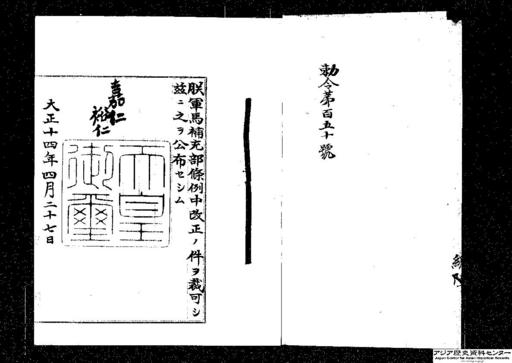 勅令第百五十號
朕軍馬補充部條例中改正ノ件ヲ裁可シ
玆ニ之ヲ公布セシム
嘉仁
裕仁
天皇御璽
大正十四年四月二十七日
アジア歴史資料センター
Japan Center for Asian Historical Records